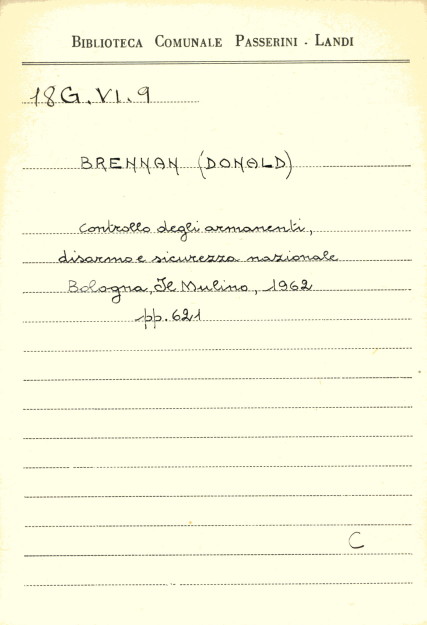 BIBLIOTECA COMUNALE PASSERINI - LANDI
18G.VI.9
BRENNAN (DONALD)
Controllo degli armamenti,
disarmo e sicurezza nazionale
Bologna, Il Mulino, 1962
pp. 621
C